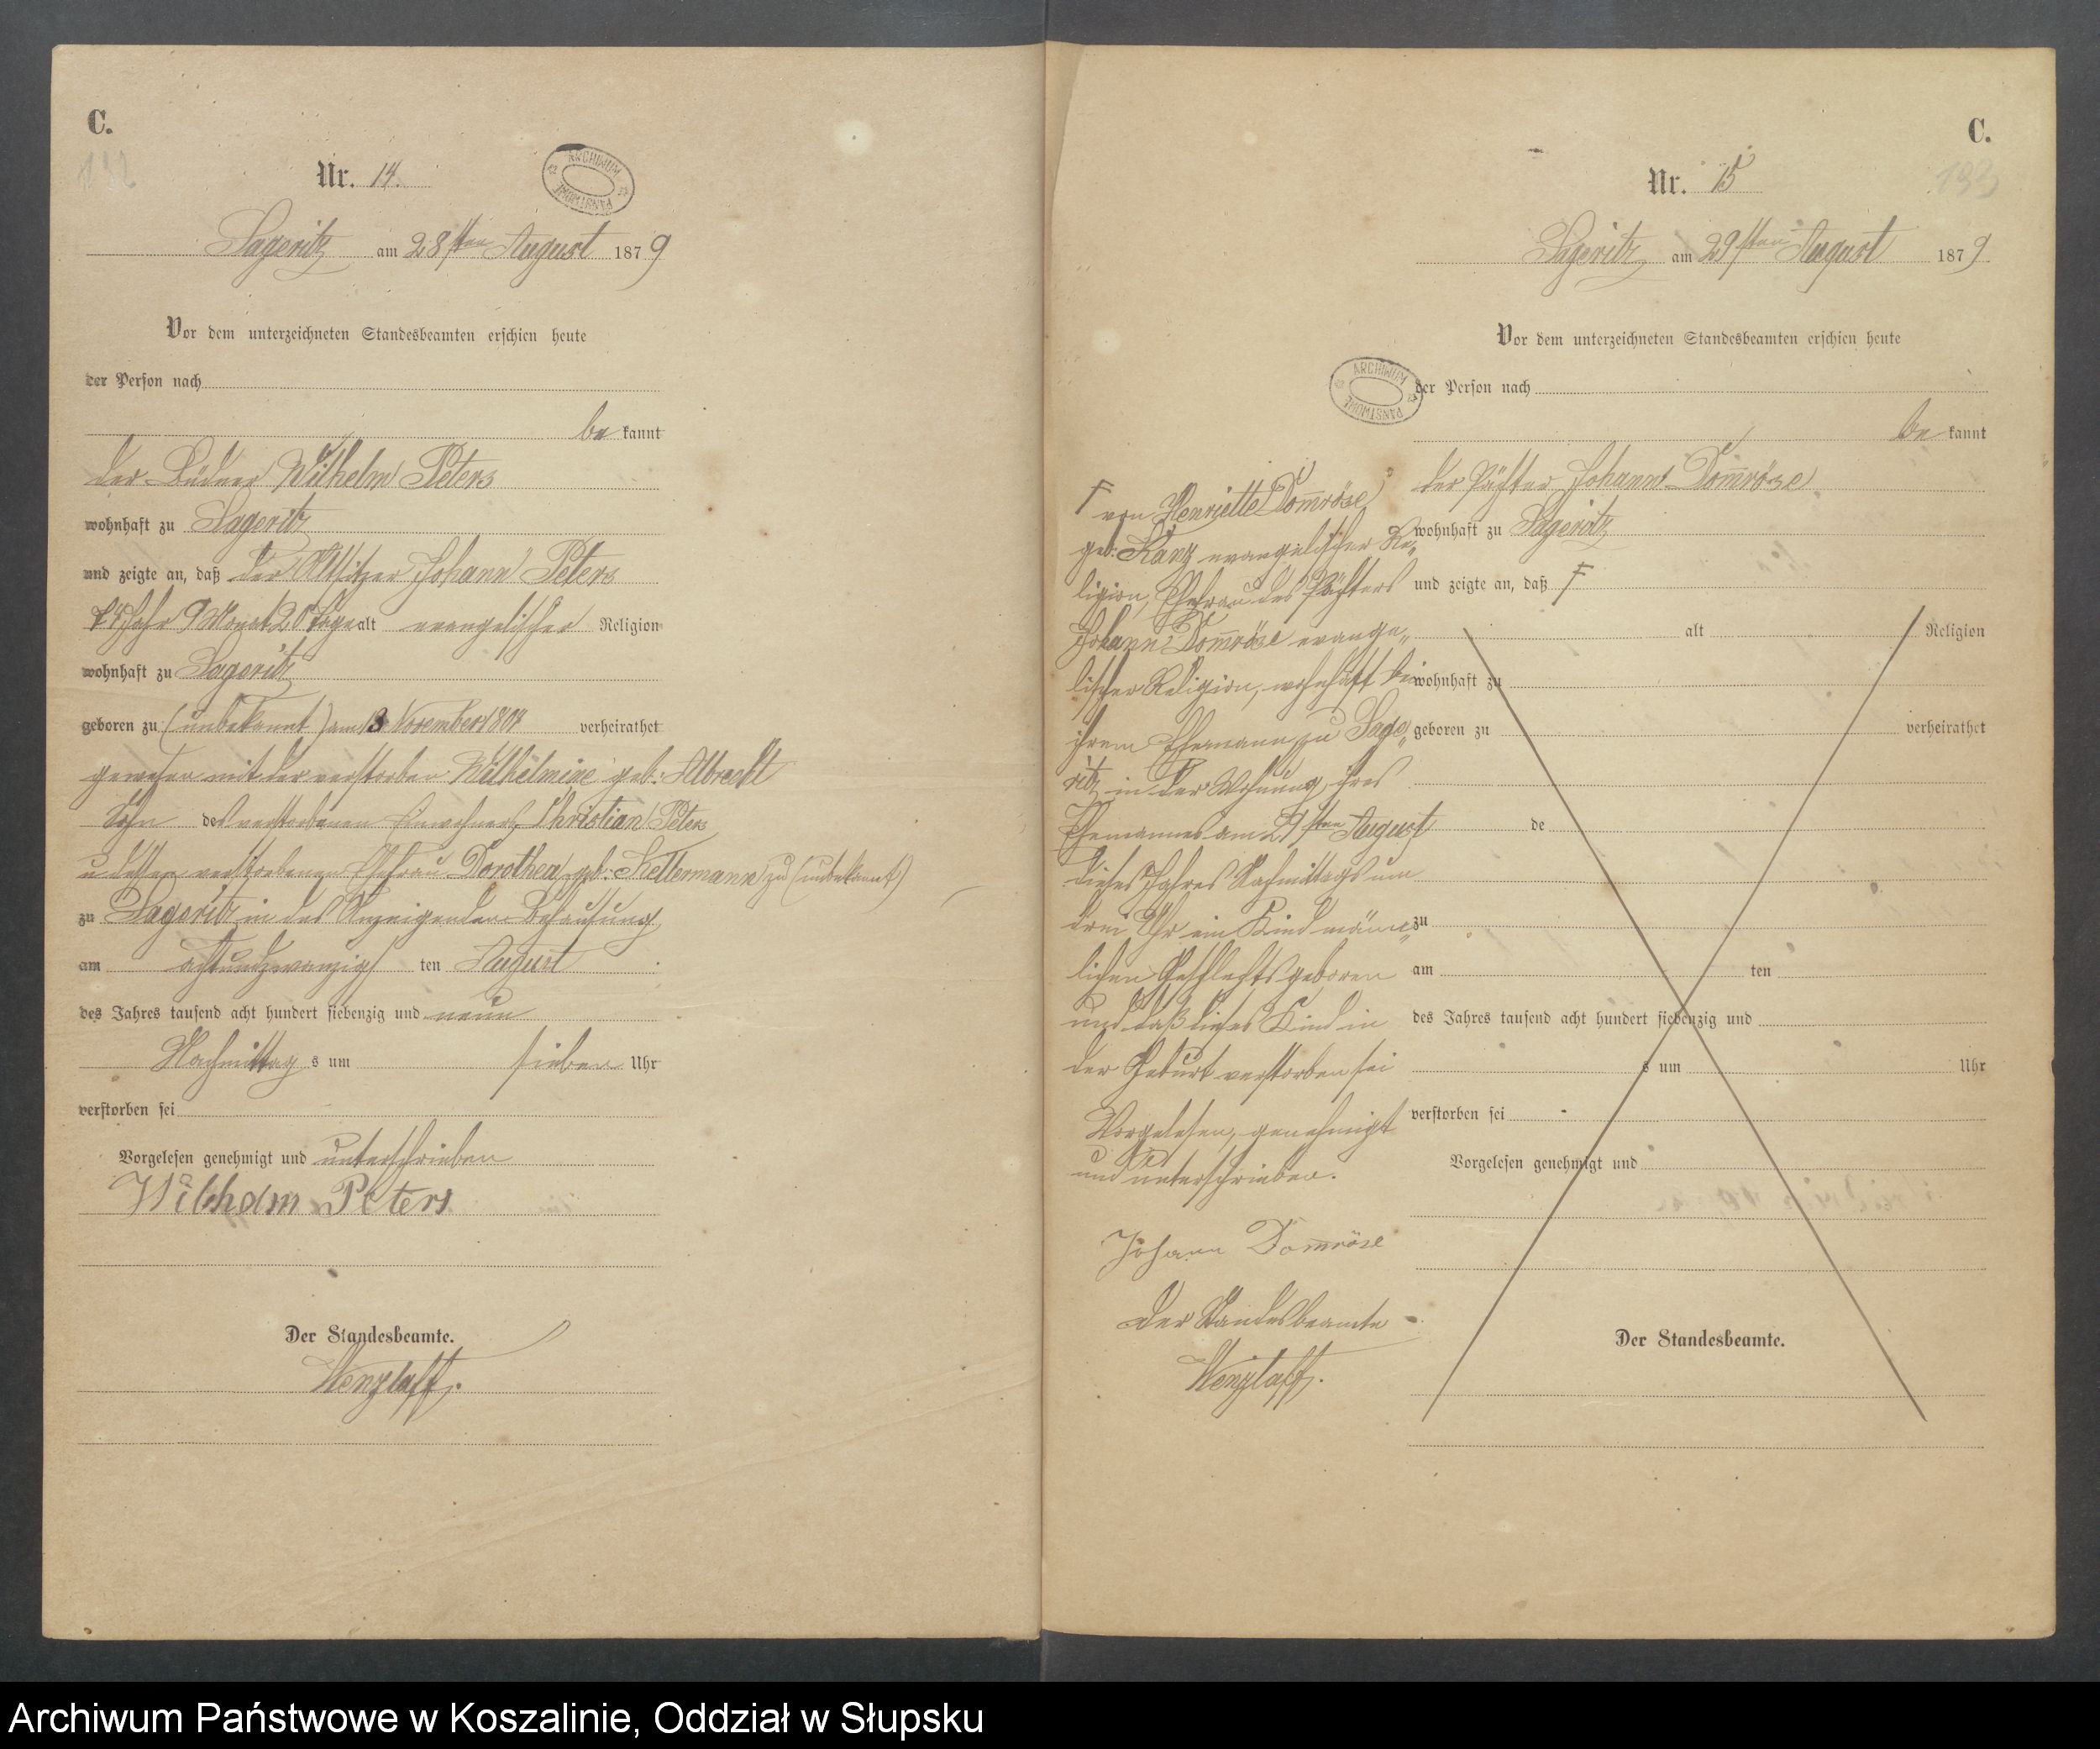 C.
132
Nr. 14.
ARCHIWUM PAŃSTWOWE
Sageritz am 28sten August 1879
Vor dem unterzeichneten Standesbeamten erschien heute
der Person nach
bekannt
der Büdner Wilhelm Peters
wohnhaft zu Sageritz
und zeigte an, daß der Altsitzer Johann Peters
74 Jahr 9 Monat 20 Tage alt evangelischer Religion
wohnhaft zu Sageritz
geboren zu (unbekannt) am 8 November 1804 verheirathet
gewesen mit der verstorben Wilhelmine geb: Albrecht
Sohn des verstorbenen Einwohners Christian Peters
u dessen verstorbenen Ehefrau Dorothea geb: Kellermann zu (unbekannt)
zu Sageritz in des Anzeigenden Behausung
am achtundzwanzigs ten August
des Jahres tausend acht hundert siebenzig und neun
Nachmittag s um sieben Uhr
verstorben sei
Vorgelesen genehmigt und unterschrieben
Wilhelm Peters
Der Standesbeamte.
Wenzlaff.
C.
133
Nr. 15
Sageritz am 29sten August 1879
Vor dem unterzeichneten Standesbeamten erschien heute
ARCHIWUM PAŃSTWOWE
der Person nach
bekannt
der Pächter Johann Domröse
wohnhaft zu Sageritz
und zeigte an, daß F
alt Religion
wohnhaft zu
geboren zu verheirathet
de
zu
am ten
des Jahres tausend acht hundert siebenzig und
s um Uhr
verstorben sei
Vorgelesen genehmigt und
Der Standesbeamte.
F von Henriette Domröse
geb: Kanz evangelischer Re„
ligion, Ehefrau des Pächters
Johann Domröse evange„
lischer Religion, wohnhaft bei
ihrem Ehemann zu Sage„
ritz in der Wohnung ihres
Ehemannes am 29sten August
dieses Jahres Nachmittags um
drei Uhr ein Kind männ„
lichen Geschlechts geboren
und daß dieses Kind in
der Geburt verstorben sei
Vorgelesen, genehmigt
und unterschrieben.
Johann Domröse
Der Standesbeamte
Wenzlaff.
Archiwum Państwowe w Koszalinie, Oddział w Słupsku